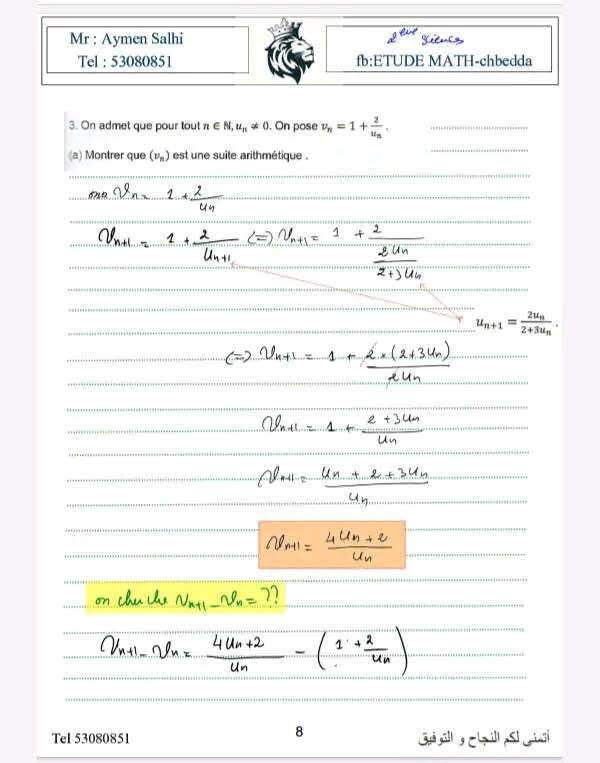 Mr : Aymen Salhi
Tel : 53080851
2eme Siences
fb:ETUDE MATH-chbedda
3. On admet que pour tout n ∈ ℕ, uₙ ≠ 0. On pose vₙ = 1 + 2/uₙ .
(a) Montrer que (vₙ) est une suite arithmétique .
ona Vₙ = 1 + 2/Uₙ
Vₙ₊₁ = 1 + 2/Uₙ₊₁ (=) Vₙ₊₁ = 1 + 2/(2Uₙ/(2+3Uₙ))
uₙ₊₁ = 2uₙ/(2+3uₙ) .
(=) Vₙ₊₁ = 1 + 2×(2+3Uₙ)/2Uₙ
Vₙ₊₁ = 1 + (2+3Uₙ)/Uₙ
Vₙ₊₁ = (Uₙ + 2 + 3Uₙ)/Uₙ
Vₙ₊₁ = (4Uₙ + 2)/Uₙ
on cherche Vₙ₊₁ - Vₙ = ??
Vₙ₊₁ - Vₙ = (4Uₙ+2)/Uₙ - (1 + 2/Uₙ)
Tel 53080851
8
أتمنى لكم النجاح و التوفيق